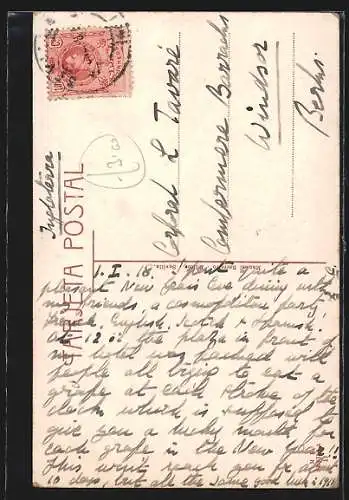 TARJETA POSTAL
Inglaterra
Corporal L Tavaré
Combermere Barracks
Windsor
Berks.
1. I. 18. I spent quite a
pleasant New Years Eve dining with
my friends, a cosmopolitan party
French, English, Scotch & Danish!
at 12 the plaza in front of
hotel was packed with
people all trying to eat a
grape at each stroke of the
clock which is supposed to
give you a lucky month for
each grape in the New Year!!
This won't reach you for about
10 days, but all the same good luck in 1918